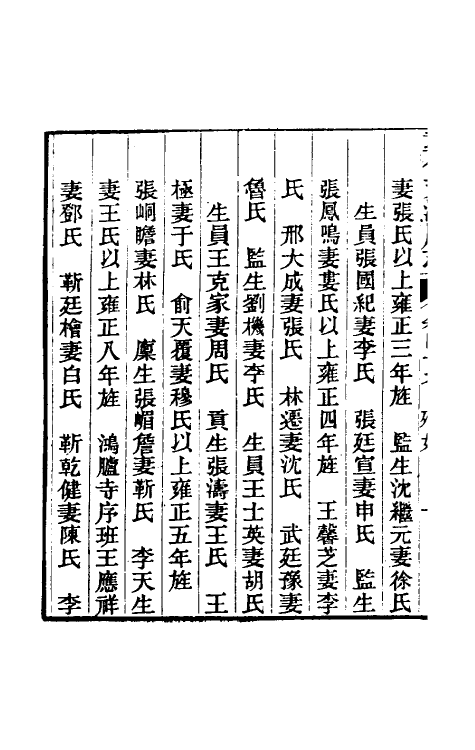 妻張氏以上雍正三年旌　監生沈繼元妻徐氏
生員張國紀妻李氏　張廷宣妻申氏　監生
張鳳鳴妻婁氏以上雍正四年旌　王馨芝妻李
氏　邢大成妻張氏　林遷妻沈氏　武廷豫妻
魯氏　監生劉機妻李氏　生員王士英妻胡氏
生員王克家妻周氏　貢生張濤妻王氏　王
極妻于氏　俞天覆妻穆氏以上雍正五年旌
張峒瞻妻林氏　廩生張嵋詹妻靳氏　李天生
妻王氏以上雍正八年旌　鴻臚寺序班王應祥
妻鄧氏　靳廷檜妻白氏　靳乾健妻陳氏　李